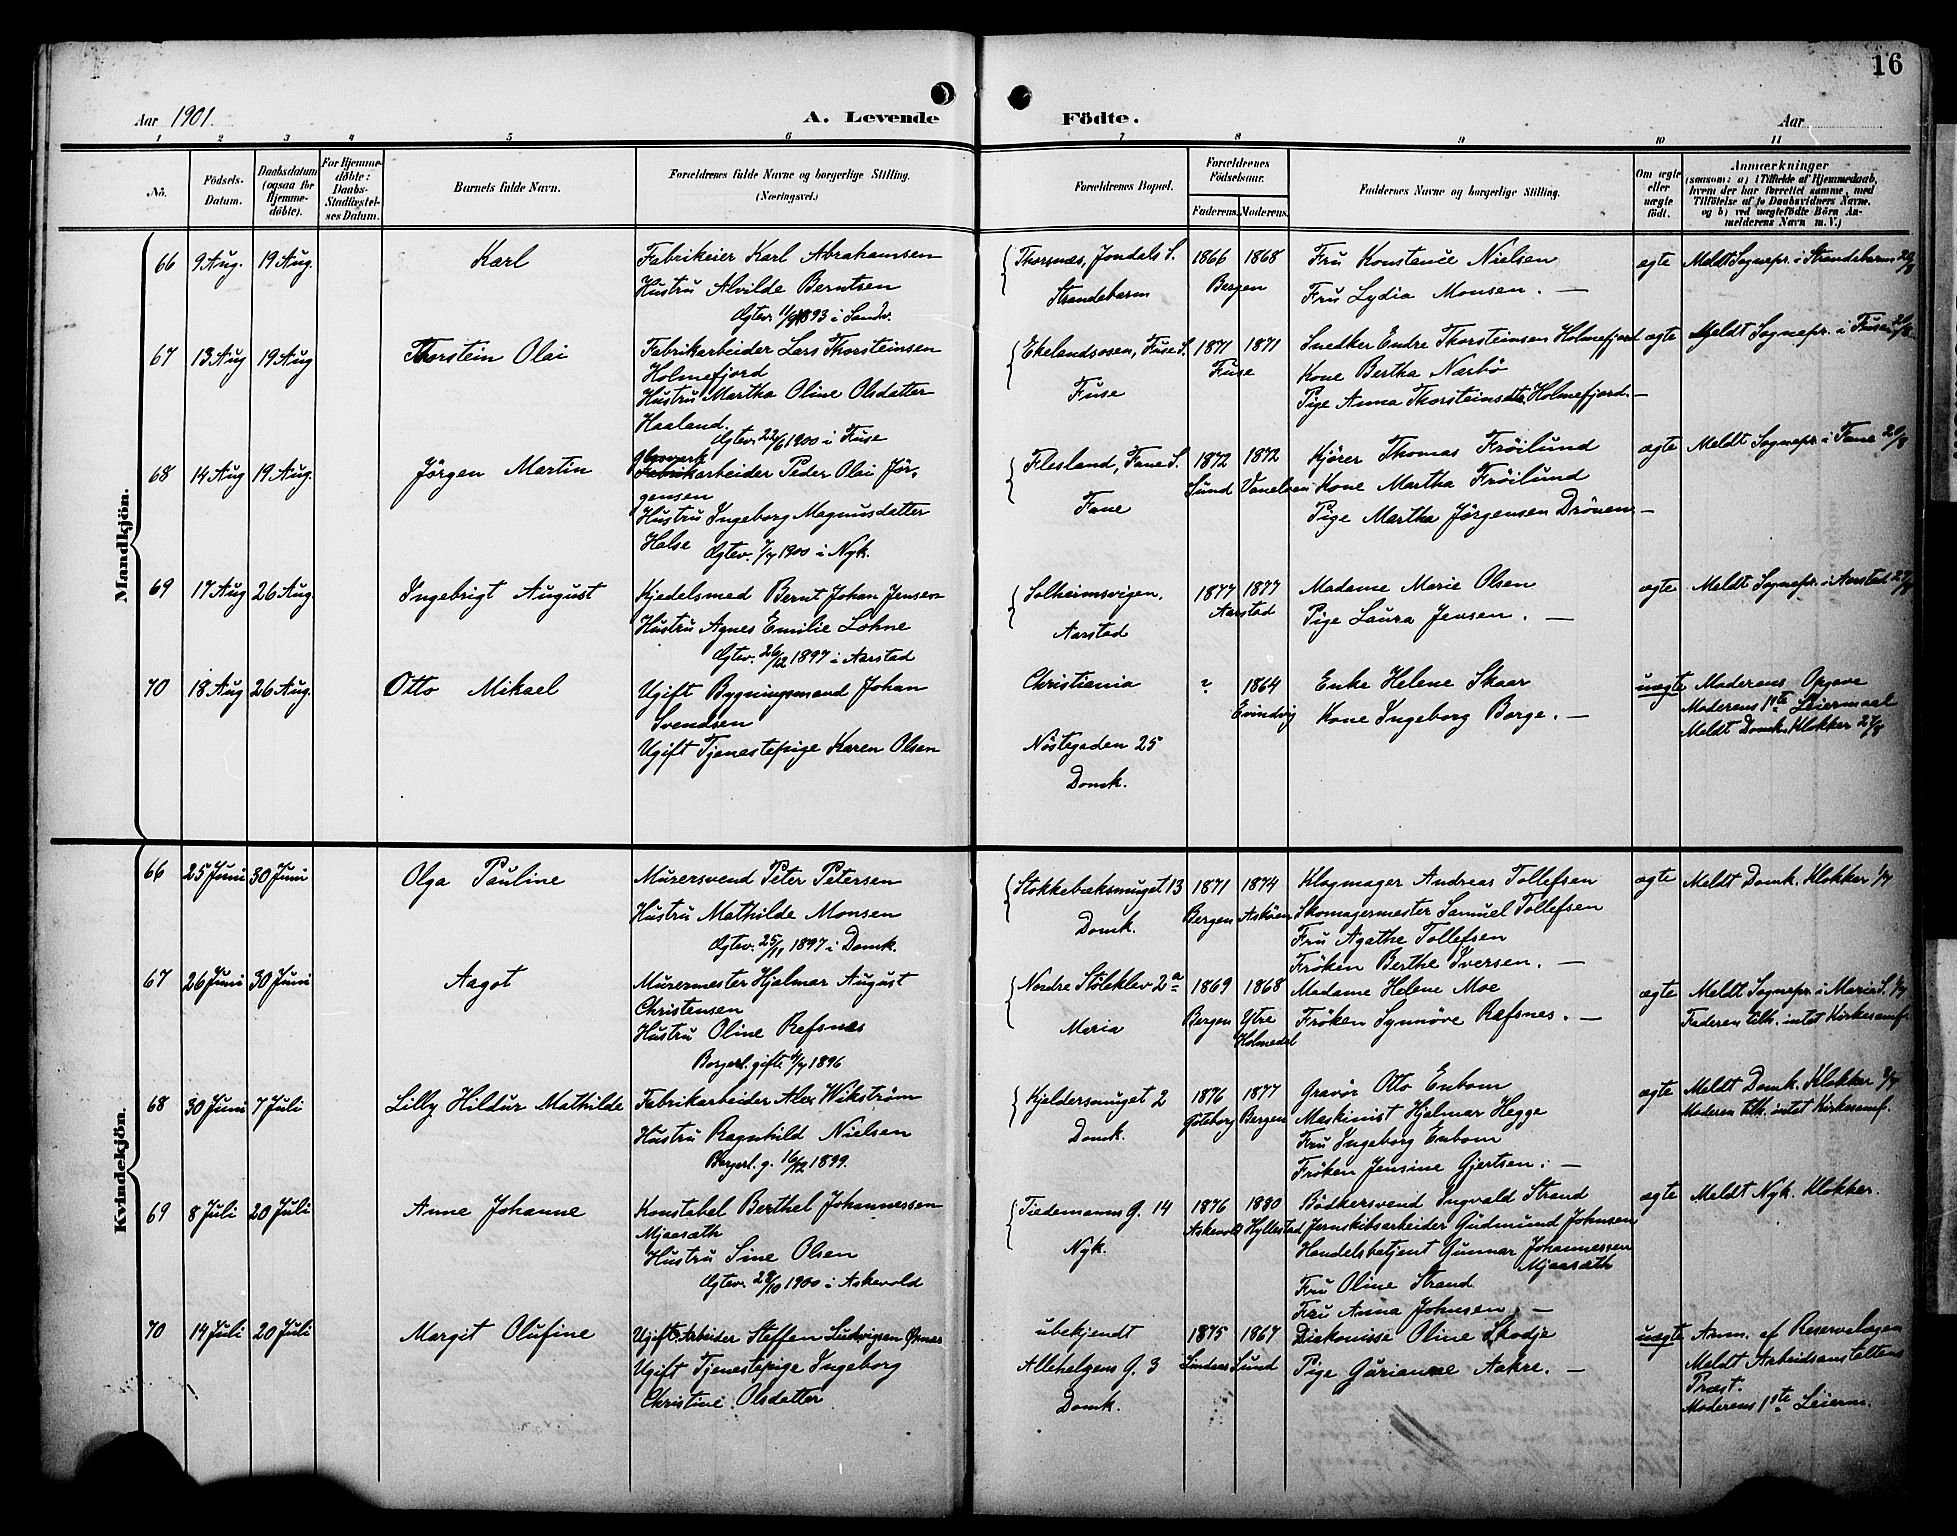 16
Aar 1901.
A. Levende Födte.
Aar
1 2 3 4 5 6 7 8 9 10 11
No.
Födsels-Datum.
Daabsdatum (ogsaa for Hjemme-döbte).
For Hjemme-döbte: Daabs-Stadfæstel-ses Datum.
Barnets fulde Navn.
Forældrenes fulde Navne og borgerlige Stilling. (Næringsvei.)
Forældrenes Bopæl.
Forældrenes Födselsaar.
Faderens. Moderens.
Faddernes Navne og borgerlige Stilling.
Om ægte eller uægte födt.
Anmærkninger
(saasom: a) i Tilfælde af Hjemmedaab, hvem der har forrettet samme, med Tilföielse af to Daabsvidners Navne, og b) ved uægtefödte Börn Anmelderens Navn m. V.)
Mandkjön.
66 9 Aug. 19 Aug. Karl
Fabrikeier Karl Abrahamsen
Hustru Alvilde Berntsen
Ægtev. 1893 i Sandv.
Thorsnæs, Jondals S.
Strandebarm
1866 1868
Bergen
Fru Konstance Nielsen
Fru Lydia Monsen. —
ægte
Meldt Sognepr. i Strandebarm 20/8
67 13 Aug 19 Aug Thorstein Olai
Fabrikarbeider Lars Thorsteinsen
Holmefjord
Hustru Martha Oline Olsdatter
Haaland.
Ægtev. 22/6 1900 i Fuse
Ekelandsosen, Fuse S.
Fuse
1871 1871
Fuse
Snedker Endre Thorsteinsen Holmefjord
Kone Bertha Nærbö
Pige Anna Thorsteinsdtr. Holmefjord. —
ægte
Meldt Sognepr. i Fuse 20/8
68 14 Aug 19 Aug. Jørgen Martin
Fabrikarbeider Peder Olai Jør-
gensen
Hustru Ingeborg Magnusdatter
Halse Ægtev. 1900 i Nyk.
Flesland, Fane S.
Fane
1872 1872
Sund Vanelven
Kjörer Thomas Fröilund
Kone Martha Fröilund
Pige Martha Jørgensen Drönen —
ægte
Meldt Sognepr. i Fane 20/8
69 17 Aug 26 Aug. Ingebrigt August
Kjedelsmed Bernt Johan Jensen
Hustru Agnes Emilie Lohne
Ægtev. 26/12 1897 i Aarstad
Solheimsvigen,
Aarstad
1877 1877
Aarstad
Madame Marie Olsen
Pige Laura Jensen. —
ægte
Meldt Sognepr. i Aarstad 27/8
70 18 Aug 26 Aug. Otto Mikael
Ugift Bygningsmand Johan
Svendsen
Ugift Tjenestepige Karen Olsen
Christiania
Nöstegaden 25
Domk.
? 1864
Evindvig
Enke Helene Skaar
Kone Ingeborg Borge. —
uægte
Moderens Opgave
Moderens 1ste Leiermaal
Meldt Domk. Klokker 27/8
Kvindekjön.
66 25 Juni 30 Juni Olga Pauline
Murersvend Peter Petersen
Hustru Mathilde Monsen
Ægtev. 25/11 1897 i Domk.
Stokkebæksmuget 13
Domk.
1871 1874
Bergen Asköen
Klogmager Andreas Tollefsen
Skomagermester Samuel Tollefsen
Fru Agathe Tollefsen
Fröken Berthe Iversen. —
ægte
Meldt Domk. Klokker 1/7
67 26 Juni 30 Juni Aagot
Murermester Hjalmar August
Christensen
Hustru Oline Refsnes
Borgerl. gifte 1896
Nordre Stöleklev 2a
Maria
1869 1868
Bergen Ytre Holmedal
Madame Helene Moe
Fröken Synnöve Refsnes. —
ægte
Meldt Sognepr. i Maria S. 1/7
Faderen tilh. intet Kirkesamf.
68 30 Juni 7 Juli Lilly Hildur Mathilde
Fabrikarbeider Alex Wikström
Hustru Ragnhild Nielsen
Borgerl. g. 16/12 1899.
Kjeldersmuget 2
Domk.
1876 1877
Göteborg Bergen
Gravör Otto Enbom
Maskinist Hjalmar Hegge
Fru Ingeborg Enbom
Fröken Jensine Gjertsen. —
ægte
Meldt Domk. Klokker
Moderen tilh. intet Kirkesamf.
69 8 Juli 20 Juli Anne Johanne
Konstabel Berthel Johannessen
Mjaasæth
Hustru Sine Olsen
Ægtev. 28/10 1900 i Askevold
Tiedemanns G. 14
Nyk.
1876 1880
Askevold Hyllestad
Bödkersvend Ingvald Strand
Jernskibsarbeider Gudmund Johnsen
Handelsbetjent Gunnar Johannessen
Mjaasæth
Fru Oline Strand
Fru Anna Johnsen. —
ægte
Meldt Nyk. Klokker.
70 14 Juli 20 Juli Margit Olufine
Ugift Arbeider Steffen Ludvigsen
Ugift Tjenestepige Ingeborg
Christine Olsdatter
ubekjendt
Allehelgens G. 3
Domk.
1875 1867
Lindaas Sund
Diakonisse Oline Skodje
Pige Gurianne Aakre. —
uægte
Anm. af Reservelægen
Meldt Arbeidsanstaltens
Præst.
Moderens 1ste Leierm.